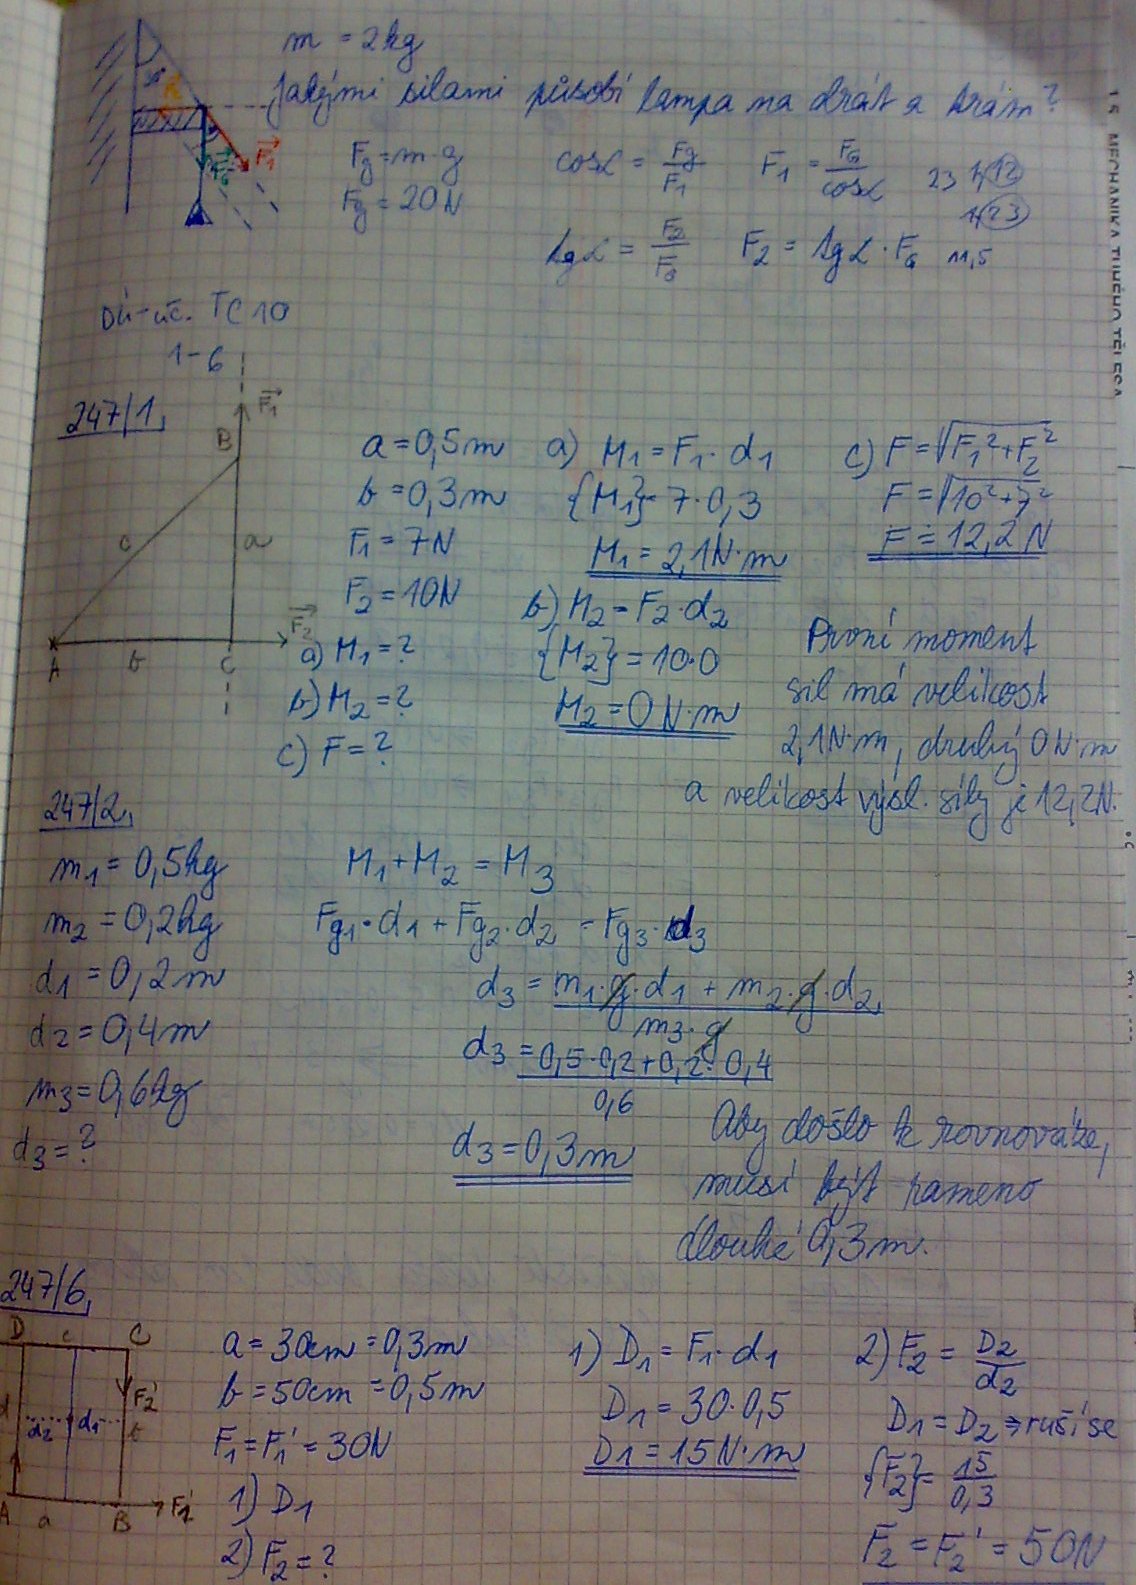 m = 2kg
Jakými silami působí lampa na drát a trám?
30°
F₁
F_G
F_g = m · g
F_g = 20N
cosα = F_g/F₁
F₁ = F_G/cosα
23 1/12
1/23
tgα = F₂/F_G
F₂ = tgα · F_G
11,5
15 MECHANIKA TUHÉHO TĚLESA
DÚ-uč. TC 10
1-6
247/1,
F₁
B
c
a
F₂
A
b
C
a = 0,5m
b = 0,3m
F₁ = 7N
F₂ = 10N
a) M₁ = ?
b) M₂ = ?
c) F = ?
a) M₁ = F₁ · d₁
{M₁} = 7 · 0,3
M₁ = 2,1N·m
b) M₂ = F₂ · d₂
{M₂} = 10·0
M₂ = 0N·m
c) F = √F₁²+F₂²
F = √10²+7²
F ≐ 12,2N
První moment
sil má velikost
2,1N·m, druhý 0N·m
a velikost výsl. síly je 12,2N.
247/2,
m₁ = 0,5kg
m₂ = 0,2kg
d₁ = 0,2m
d₂ = 0,4m
m₃ = 0,6kg
d₃ = ?
M₁ + M₂ = M₃
Fg₁ · d₁ + Fg₂ · d₂ = Fg₃ · d₃
d₃ = m₁·g·d₁ + m₂·g·d₂
m₃·g
d₃ = 0,5·0,2+0,2·0,4
0,6
d₃ = 0,3m
Aby došlo k rovnováze,
musí být rameno
dlouhé 0,3m.
247/6,
D c C
F₂'
d d₂ d₁ b
A a B F₁'
a = 30cm = 0,3m
b = 50cm = 0,5m
F₁ = F₁' = 30N
1) D₁
2) F₂ = ?
1) D₁ = F₁ · d₁
D₁ = 30·0,5
D₁ = 15N·m
2) F₂ = D₂/d₂
D₁ = D₂ ⇒ ruší se
{F₂} = 15/0,3
F₂ = F₂' = 50N